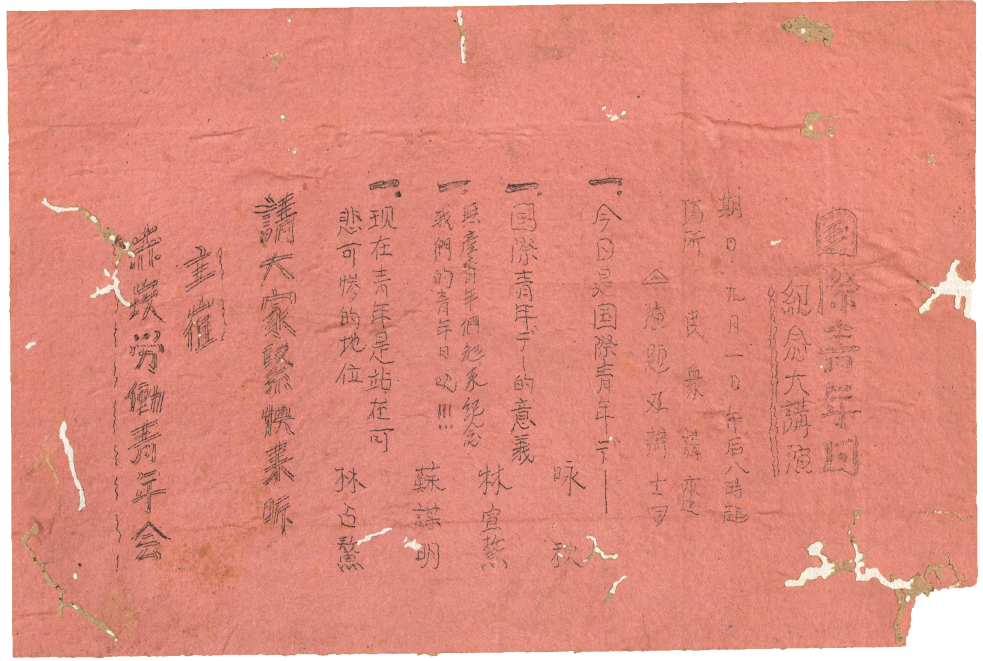 国際青年日
紀念大講演
期日 九月一日午后八時起
場所 民衆講座
△演題及辯士
一、今日是国際青年デー 咏秋
一、国際青年デーの意義 林宣鰲
一、無產青年們起來紀念
我們的青年日吧!!! 蘇謀明
一、现在青年是站在可
悲可惨的地位 林占鰲
請大家緊快來听
主催
赤崁労働青年会